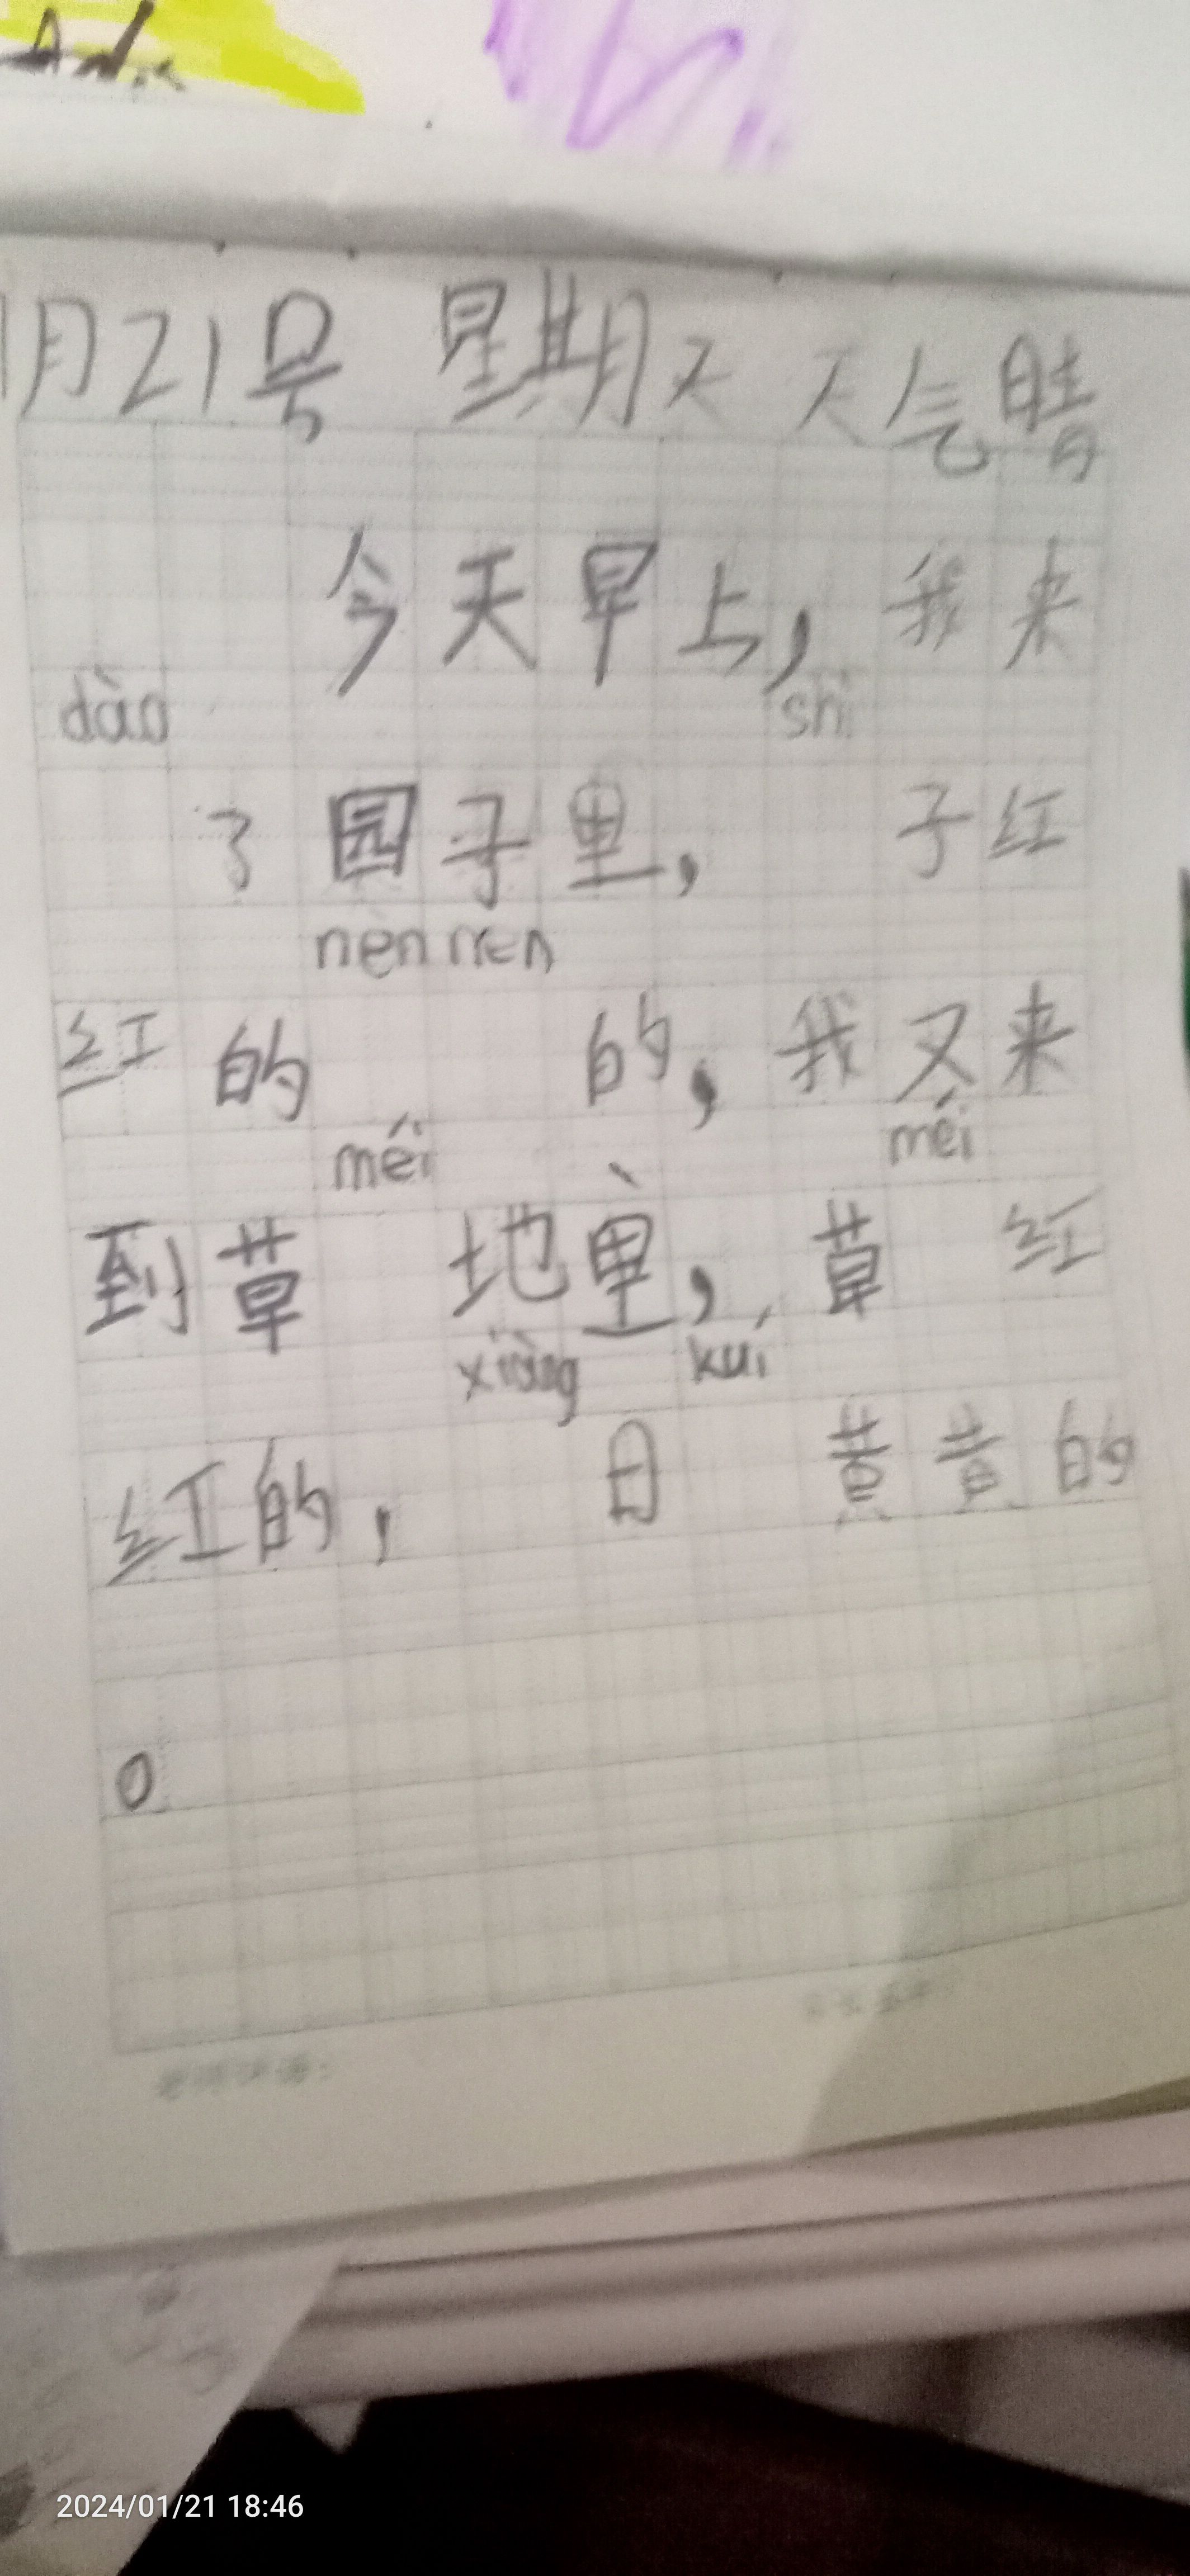 1月21号 星期天 天气晴
今天早上，我来
dào shì
了园子里， 子红
nèn nen
红的 的，我又来
méi méi
到草 地里，草 红
xiàng kuí
红的， 日 黄黄的
。
2024/01/21 18:46